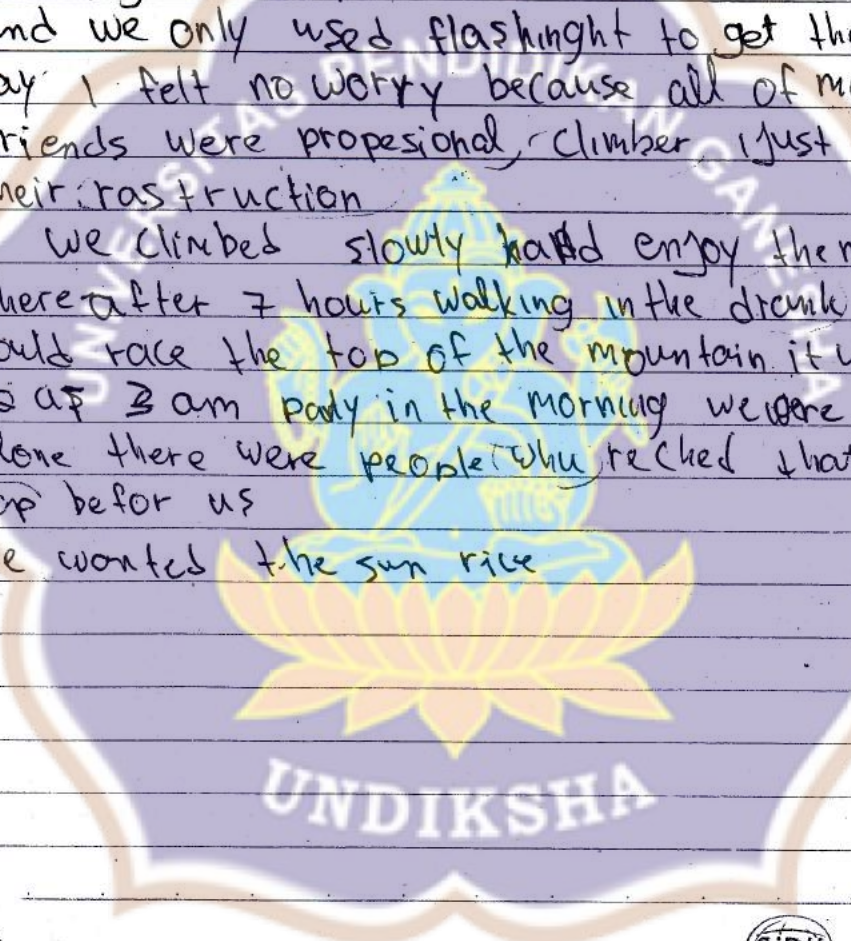 nd we only used flashinght to get th
ay I felt no worry because all of m
riends were propesional, climber, i just
heir rastruction
we climbed slowly hand enjoy the
here after 7 hours walking in the drank
ould race the top of the mountain it
3 am party in the morning we were
lone there were people whu reched that
befor us
e wonted the sun rice
UNIVERSITAS PENDIDIKAN GANESHA
UNDIKSHA